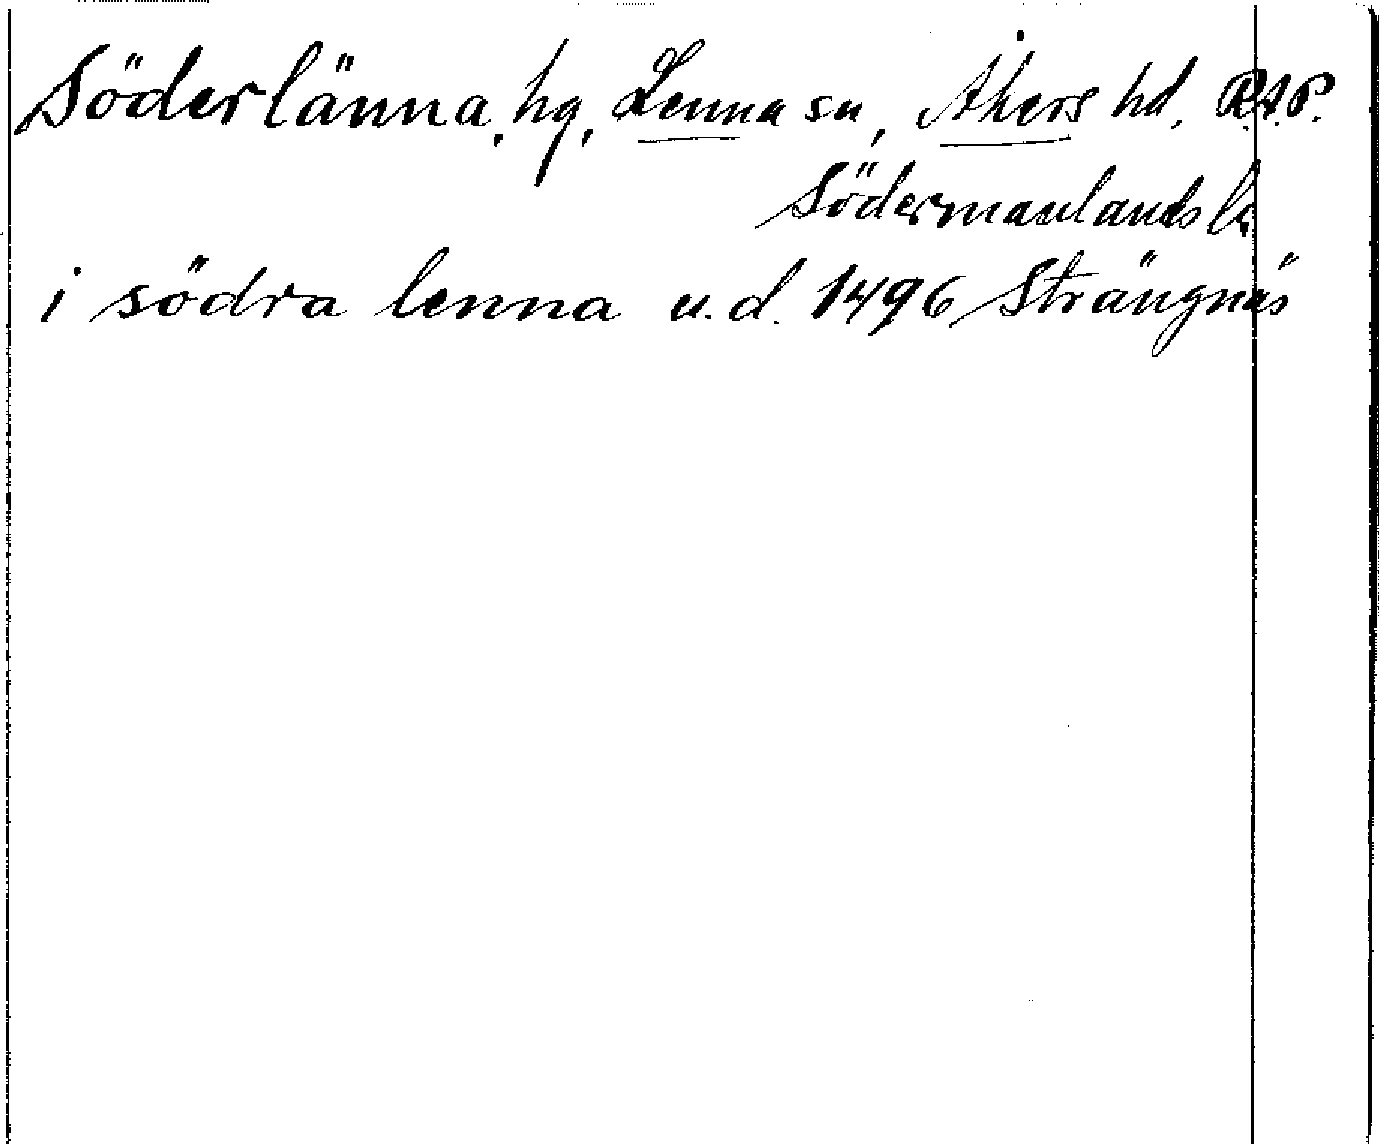 Söderlänna, hg, Lenna sn, Åkers hd. R.A.P.
Södermanlands l.
i södra lenna u. d. 1496 Strängnäs